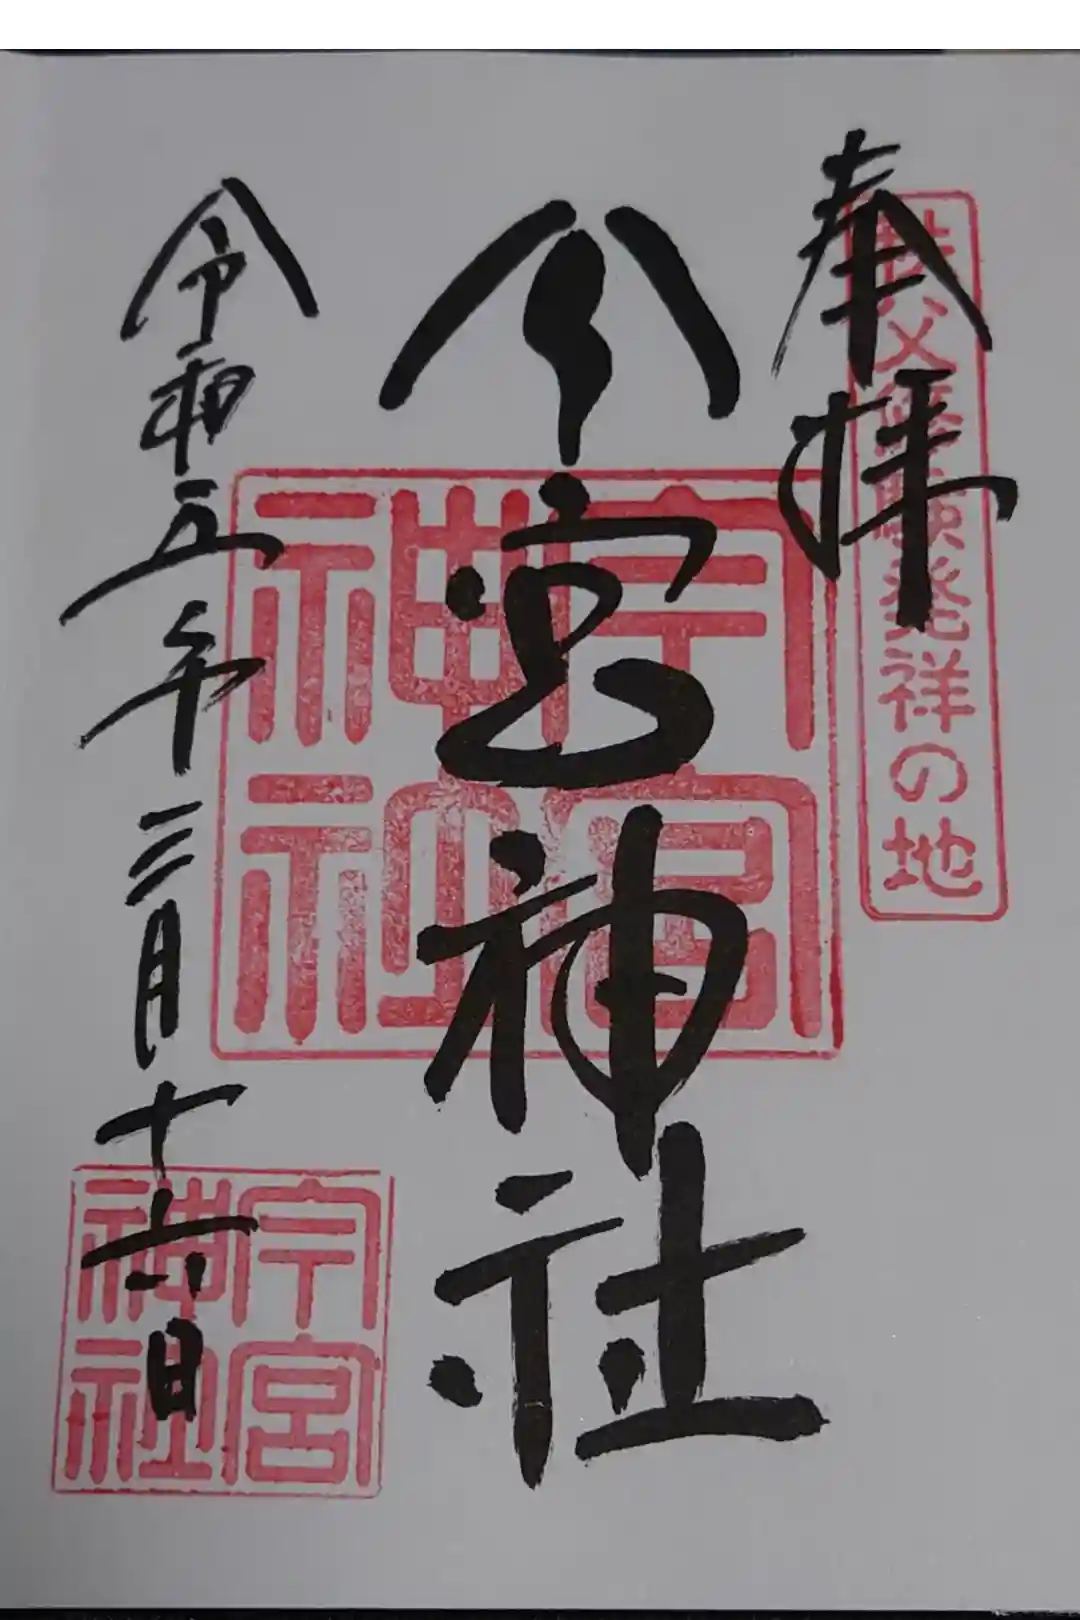 奉拝
秩父修験発祥の地
今宮神社
今宮神社
令和五年三月十六日
今宮神社